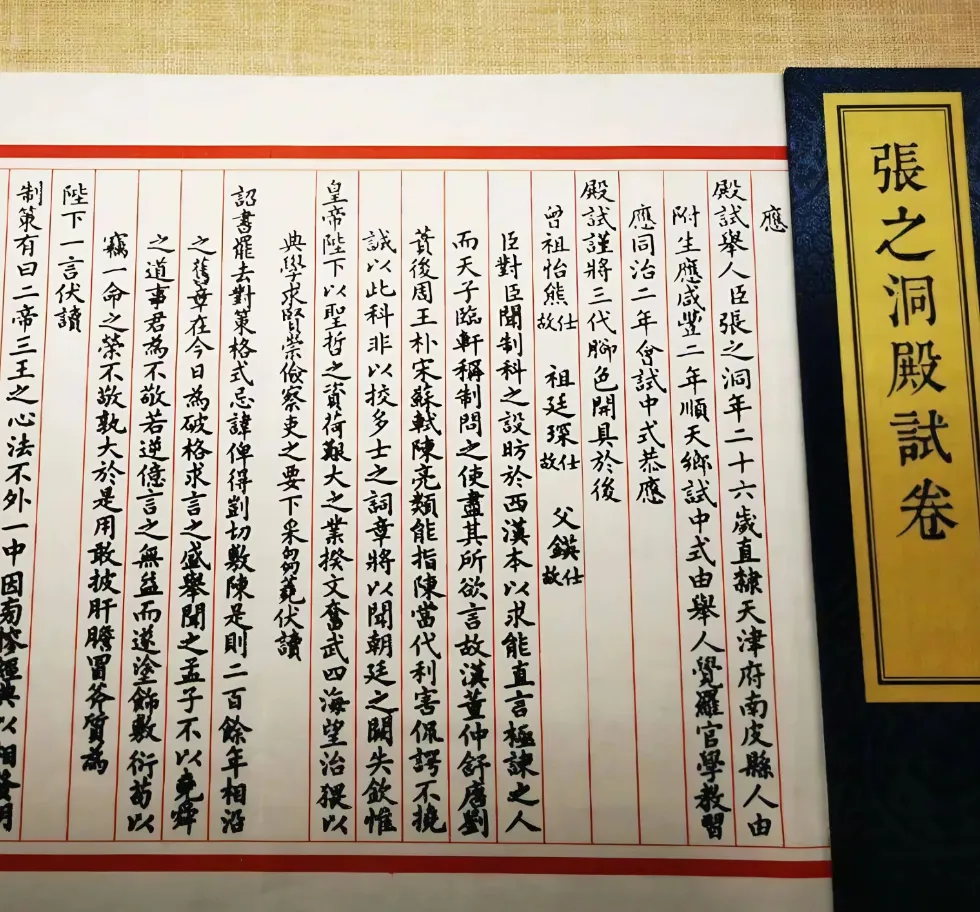 張之洞殿試卷
應
殿試舉人臣張之洞年二十六歲直隸天津府南皮縣人由
附生應咸豐二年順天鄉試中式由舉人覺羅官學教習
應同治二年會試中式恭應
殿試謹將三代腳色開具於後
曾祖怡熊故仕 祖廷琛故仕 父鍈故仕
臣對臣聞制科之設昉於西漢本以求能直言極諫之人
而天子臨軒稱制問之使盡其所欲言故漢董仲舒唐劉
蕡後周王朴宋蘇軾陳亮類能指陳當代利害侃諤不撓
誠以此科非以挍多士之詞章將以聞朝廷之闕失欽惟
皇帝陛下以聖哲之資荷艱大之業揆文奮武四海望治猥以
典學求賢崇儉察吏之要下采芻蕘伏讀
詔書罷去對策格式忌諱俾得剴切敷陳是則二百餘年相沿
之舊章在今日為破格求言之盛舉聞之孟子不以堯舜
之道事君為不敬若逆億言之無益而遂塗飾敷衍苟以
竊一命之榮不敬孰大於是用敢披肝膽冒斧質為
陛下一言伏讀
制策有曰二帝三王之心法不外一中因勷修經典以相發明